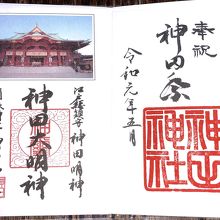 奉祝
神田祭
令和元年五月
神田
神社
江戸総鎮守
神田明神
神田大明神